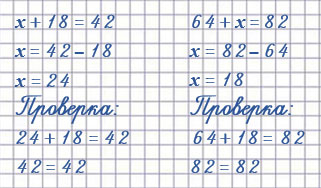 x + 18 = 42
x = 42 – 18
x = 24
Проверка:
24 + 18 = 42
42 = 42
64 + x = 82
x = 82 – 64
x = 18
Проверка:
64 + 18 = 82
82 = 82